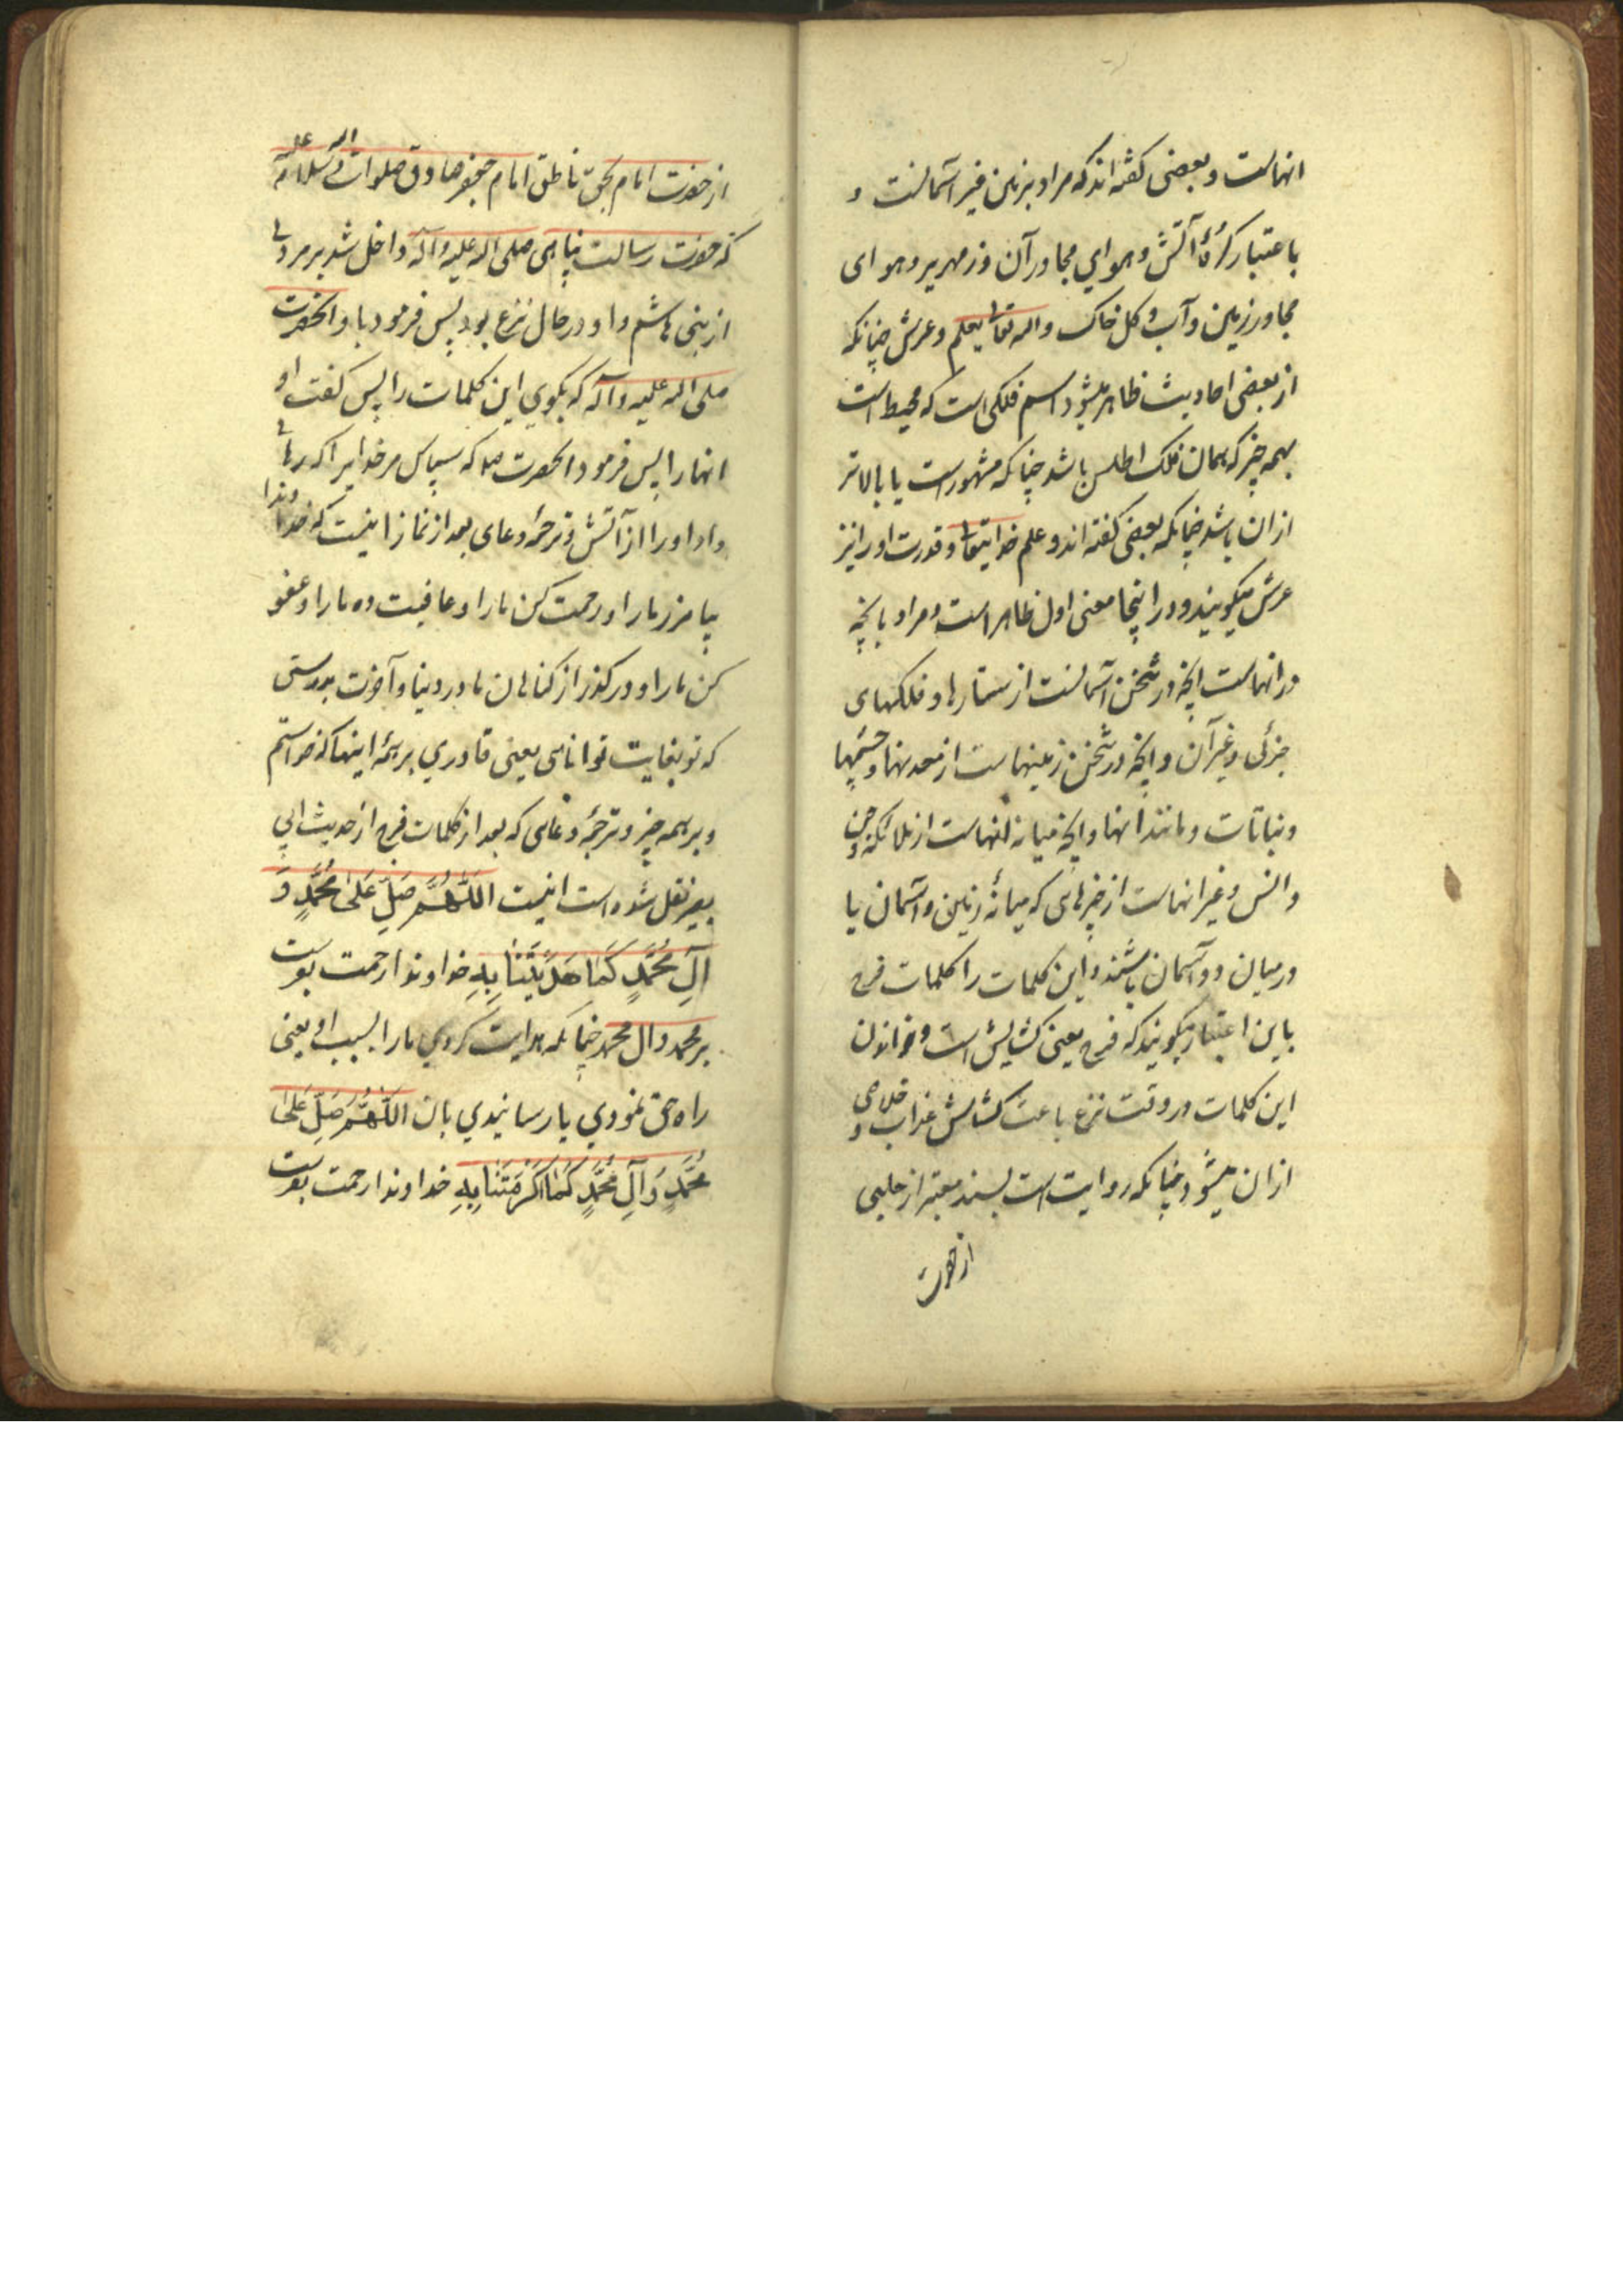 انهاست و بعضی کفته‌اند که مراد بزمین غیر آسمانست و
باعتبار کرۀ آتش و هوای مجاور آن و زمهریر و هوای
مجاور زمین و آب و کل خاک و اله تعالی یعلم و عرش چنانکه
از بعضی احادیث ظاهر میشود اسم فلکی است که محیط است
بهمه چیز که همان فلک اطلس باشد چنانکه مشهور است یا بالاتر
ازان باشد چنانکه بعضی کفته اند و علم خدایتعالی و قدرت او را نیز
عرش میکویند و در اینجا معنی اول ظاهر است و مراد بانچه
در انهاست انچه در ثخن آسمانست از ستارها و فلکهای
جزئی و غیر آن و انچه در ثخن زمینهاست از معدنها و چشمها
و نباتات و مانند انها و انچه میانه انهاست از ملائکه و جن
و انس و غیر انهاست از چیزهای که میانۀ زمین و آسمان یا
درمیان دو آسمان باشند و این کلمات را کلمات فرج
باین اعتبار میکویند که فرج بمعنی کشایش است و خواندن
این کلمات در وقت نزع باعث کشایش عذاب و خلاصی
ازان میشود چنانکه روایت است بسند معتبر از حلبی
از حضرت
از حضرت امام بحق ناطق امام جعفر صادق صلوات اله و سلامه علیه
که حضرت رسالت پناهی صلی اله علیه و آله داخل شد بر مردی
از بنی هاشم و او در حال نزع بود پس فرمود باو انحضرت
صلی اله علیه و آله که بکوی این کلمات را پس کفت او
انها را پس فرمود انحضرت صلا که سپاس مر خدایرا که رهائی
داد او را از آتش و ترجمۀ دعای بعد از نماز اینست که خداوندا
بیامرز مارا و رحمت کن مارا و عافیت ده مارا و عفو
کن مارا و درکذر از کناهان ما در دنیا و آخرت بدرستی
که تو بغایت توانائی یعنی قادری بر همۀ اینها که خواستم
و بر همه چیز و ترجمۀ دعائی که بعد از کلمات فرج از حدیث ابی
بصیر نقل شده است اینست اَللّٰهُمَّ صَلِّ عَلیٰ مُحَمَّدٍ وَ
آلِ مُحَمَّدٍ کَمٰا هَدَیْتَنٰا بِهِ خداوندا رحمت بفرست
بر محمد و ال محمد چنانکه هدایت کردی مارا بسبب او یعنی
راه حق نمودی یا رسانیدی بان اَللّٰهُمَّ صَلِّ عَلیٰ
مُحَمَّدٍ وَ آلِ مُحَمَّدٍ کَمٰا اَکْرَمْتَنٰا بِهِ خداوندا رحمت بفرست